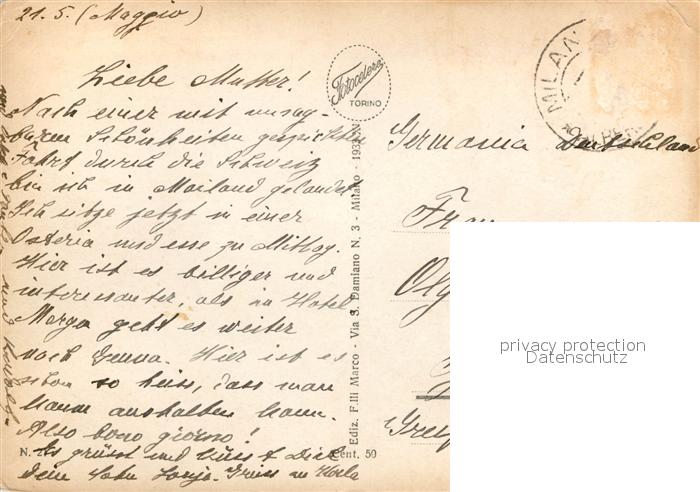 21. 5. (Maggio)
Liebe Mutter!
Nach einer mit unsag-
baren Schönheiten gespickten
Fahrt durch die Schweiz
bin ich in Mailand gelandet
Ich sitze jetzt in einer
Osteria und esse zu Mittag.
Hier ist es billiger und
interessanter, als im Hotel
Morgen geht es weiter
nach Genua. Hier ist es
schon so heiss, dass man
kaum aushalten kann.
Also bono giorno!
Es grüsst und küsst Dich
dein Sohn
N.
Cent. 50
Ediz. F.lli Marco - Via S. Damiano N. 3 - Milano - 1933
Fotocelere
TORINO
MILAN
Germania Deutschland
Frau
privacy protection
Datenschutz